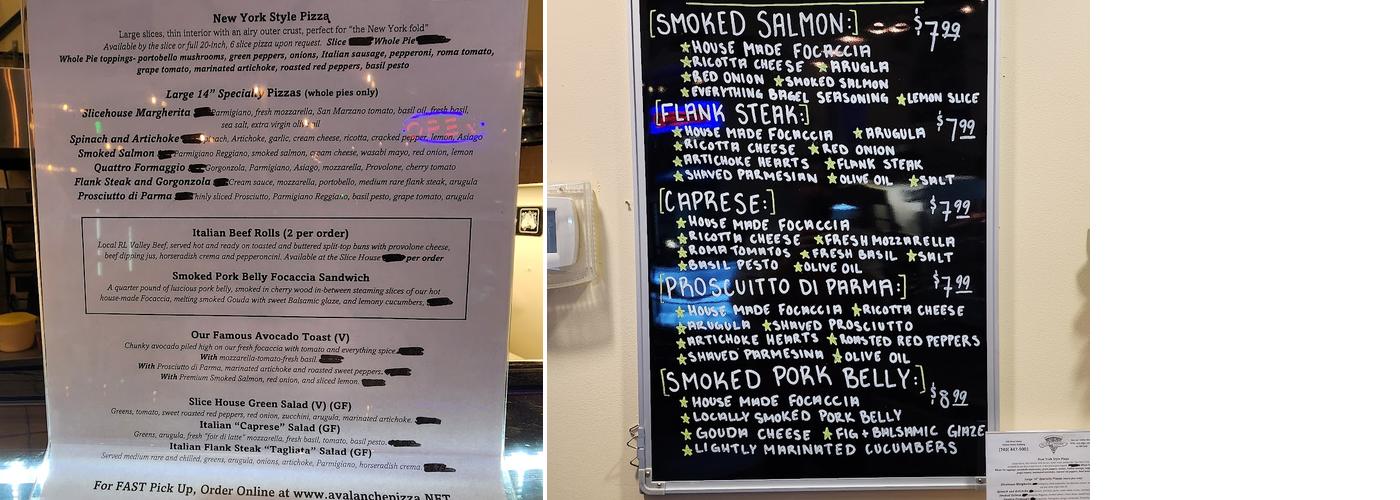 New York Style Pizza
Large slices, thin interior with an airy outer crust, perfect for "the New York fold"
Available by the slice or full 20-inch, 6 slice pizza upon request. Slice Whole Pie
Whole Pie toppings- portobello mushrooms, green peppers, onions, Italian sausage, pepperoni, roma tomato,
grape tomato, marinated artichoke, roasted red peppers, basil pesto
Large 14" Specialty Pizzas (whole pies only)
Slicehouse Margherita Parmigiano, fresh mozzarella, San Marzano tomato, basil oil, fresh basil,
sea salt, extra virgin olive oil
Spinach and Artichoke Spinach, Artichoke, garlic, cream cheese, ricotta, cracked pepper, lemon, Asiago
OPEN
Smoked Salmon Parmigiano Reggiano, smoked salmon, cream cheese, wasabi mayo, red onion, lemon
Quattro Formaggio Gorgonzola, Parmigiano, Asiago, mozzarella, Provolone, cherry tomato
Flank Steak and Gorgonzola Cream sauce, mozzarella, portobello, medium rare flank steak, arugula
Prosciutto di Parma Thinly sliced Prosciutto, Parmigiano Reggiano, basil pesto, grape tomato, arugula
Italian Beef Rolls (2 per order)
Local RL Valley Beef, served hot and ready on toasted and buttered split-top buns with provolone cheese,
beef dipping jus, horseradish crema and pepperoncini. Available at the Slice House per order
Smoked Pork Belly Focaccia Sandwich
A quarter pound of luscious pork belly, smoked in cherry wood in-between steaming slices of our hot
house-made Focaccia, melting smoked Gouda with sweet Balsamic glaze, and lemony cucumbers,
Our Famous Avocado Toast (V)
Chunky avocado piled high on our fresh focaccia with tomato and everything spice
With mozzarella-tomato-fresh basil.
With Prosciutto di Parma, marinated artichoke and roasted sweet peppers.
With Premium Smoked Salmon, red onion, and sliced lemon.
Slice House Green Salad (V) (GF)
Greens, tomato, sweet roasted red peppers, red onion, zucchini, arugula, marinated artichoke.
Italian "Caprese" Salad (GF)
Greens, arugula, fresh "foir di latte" mozzarella, fresh basil, tomato, basil pesto.
Italian Flank Steak "Tagliata" Salad (GF)
Served medium rare and chilled, greens, arugula, onions, artichoke, Parmigiano, horseradish crema.
For FAST Pick Up, Order Online at www.avalanchepizza.NET
[SMOKED SALMON:] $7.99
HOUSE MADE FOCACCIA
RICOTTA CHEESE ARUGLA
RED ONION SMOKED SALMON
EVERYTHING BAGEL SEASONING LEMON SLICE
[FLANK STEAK:] $7.99
HOUSE MADE FOCACCIA ARUGULA
RICOTTA CHEESE RED ONION
ARTICHOKE HEARTS FLANK STEAK
SHAVED PARMESIAN OLIVE OIL SALT
[CAPRESE:] $7.99
HOUSE MADE FOCACCIA
RICOTTA CHEESE FRESH MOZZARELLA
ROMA TOMATOS FRESH BASIL SALT
BASIL PESTO OLIVE OIL
[PROSCUITTO DI PARMA:] $7.99
HOUSE MADE FOCACCIA RICOTTA CHEESE
ARUGULA SHAVED PROSCIUTTO
ARTICHOKE HEARTS ROASTED RED PEPPERS
SHAVED PARMESINA OLIVE OIL
[SMOKED PORK BELLY:] $8.99
HOUSE MADE FOCACCIA
LOCALLY SMOKED PORK BELLY
GOUDA CHEESE FIG + BALSAMIC GLAZE
LIGHTLY MARINATED CUCUMBERS
New York Style Pizza